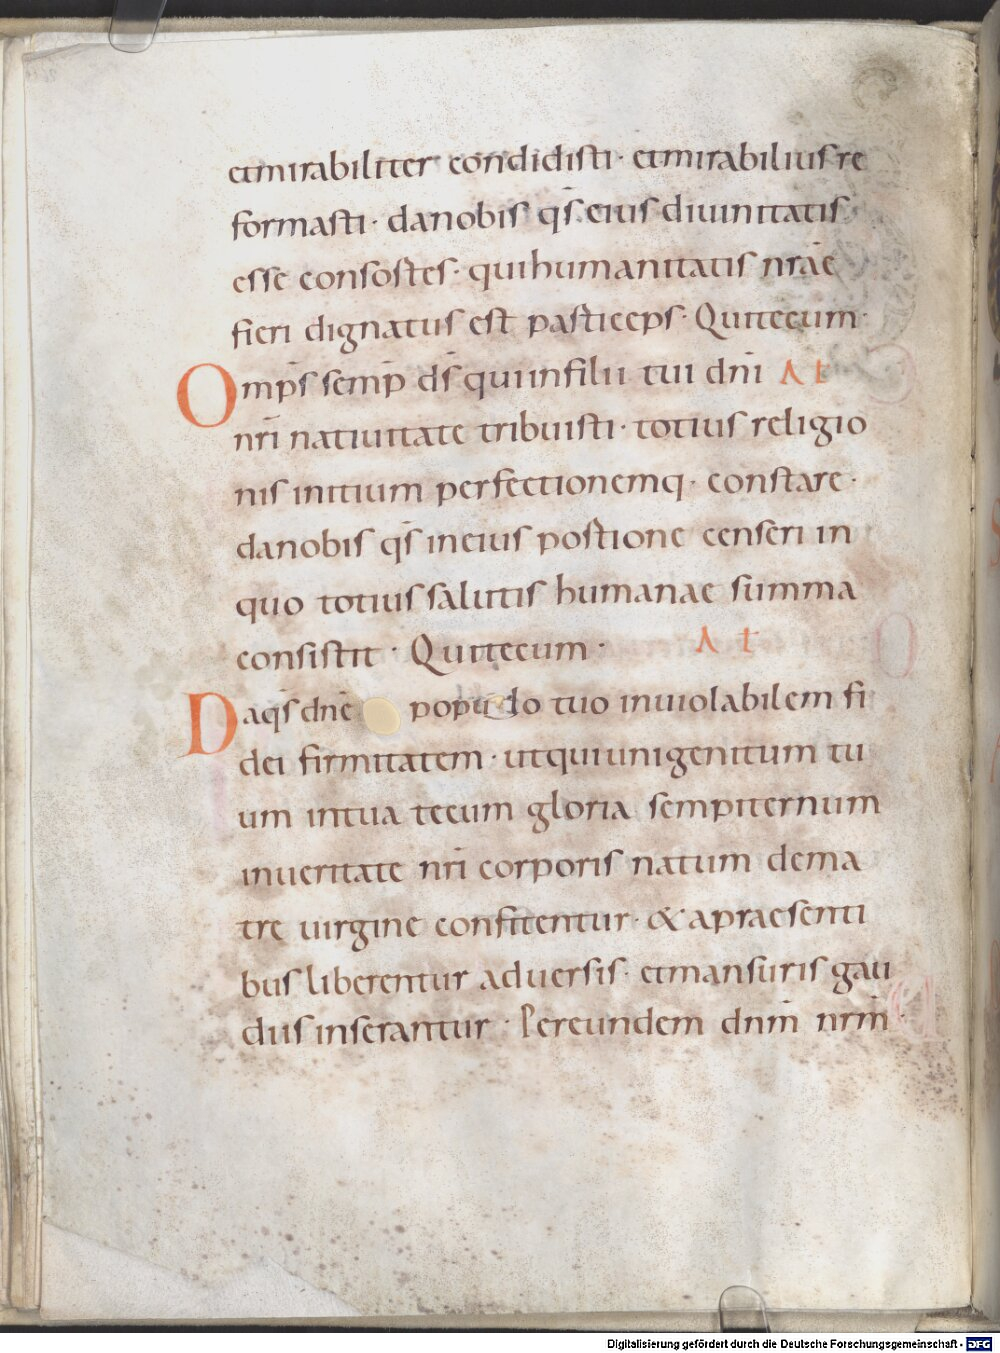 etmirabiliter condidisti· etmirabiliusre
formasti· danobis qs̄ eius diuinitatis
esse consostes· quihumanitatis nrāe
fieri dignatus est pasticeps· Quitecum·
Omps̄ semp̄ ds̄ quiinfilii tui dnī ΛƖ
nrī natiuitate tribuisti· totius religio
nis initium perfectionemq· constare·
danobis qs̄ ineius postione censeri in
quo totius salutis humanae summa
consistit· Quitecum· Λ Ɩ
Daqs̄ dnē populo tuo inuiolabilem fi
dei firmitatem· utquiunigenitum tu
um intua tecum gloria sempiternum
inueritate nrī corporis natum dema
tre uirgine confitentur· &apraesenti
bus liberentur aduersis· etmansuris gau
diis inserantur· Pereundem dnm̄ nrm̄·
Digitalisierung gefördert durch die Deutsche Forschungsgemeinschaft - DFG